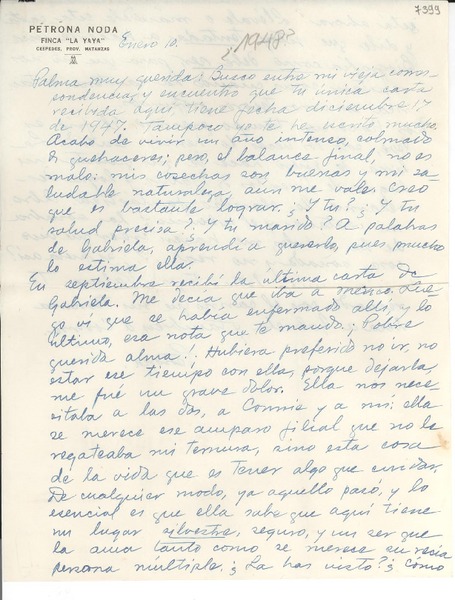 7399
PETRONA NODA
FINCA "LA YAYA"
CESPEDES, PROV. MATANZAS
Enero 10. ¿1948?
Palma muy querida: Busco entre mi vieja corres
pondencia, y encuentro que tu única carta
recibida aquí, tiene fecha diciembre 17
de 1947. Tampoco yo te he escrito mucho.
Acabo de vivir un año intenso, colmado
de quehaceres; pero, el balance final, no es
malo: mis cosechas son buenas y mi sa-
ludable naturaleza, aún me vale. Creo
que es bastante lograr. ¿Y tu? ¿Y tu
salud precisa? ¿Y tu marido? A palabras
de Gabriela, aprendí a quererlo, pues mucho
lo estima ella.
En septiembre recibí la última carta de
Gabriela. Me decía que iba a México. Lue-
go vi que se había enfermado allí, y lo
último, esa nota que te mando. ¡Pobre
querida alma! Hubiera preferido no ir, no
estar ese tiempo con ella, porque dejarla,
me fué un grave dolor. Ella nos nece
sitaba a las dos, a Connie y a mí; ella
se merece ese amparo filial que no le
regateaba mi ternura, sino esta cosa
de la vida que es tener algo que cuidar.
De cualquier modo, ya aquello pasó, y lo
esencial es que ella sabe que aquí tiene
un lugar silvestre, seguro, y un ser que
la ama tanto como se merece su recia
persona múltiple. ¿La has visto? ¿Cómo